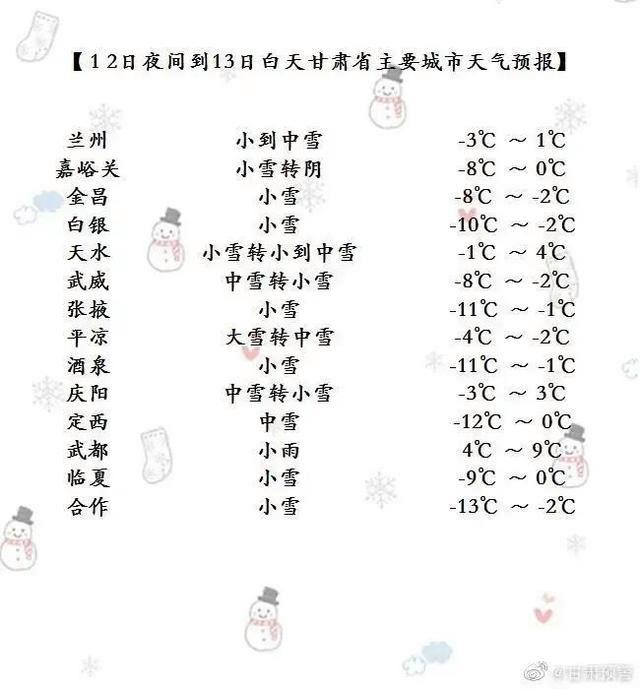 【12日夜间到13日白天甘肃省主要城市天气预报】
兰州 小到中雪 -3℃ ～ 1℃
嘉峪关 小雪转阴 -8℃ ～ 0℃
金昌 小雪 -8℃ ～ -2℃
白银 小雪 -10℃ ～ -2℃
天水 小雪转小到中雪 -1℃ ～ 4℃
武威 中雪转小雪 -8℃ ～ -2℃
张掖 小雪 -11℃ ～ -1℃
平凉 大雪转中雪 -4℃ ～ -2℃
酒泉 小雪 -11℃ ～ -1℃
庆阳 中雪转小雪 -3℃ ～ 3℃
定西 中雪 -12℃ ～ 0℃
武都 小雨 4℃ ～ 9℃
临夏 小雪 -9℃ ～ 0℃
合作 小雪 -13℃ ～ -2℃
@甘肃预警